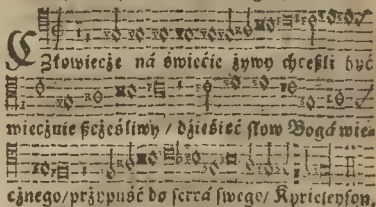 Człowiecze ná świećie żywy chceßli być
wiecżnie ßcżęśliwy / dźieśieć słow Bogá wie-
cżnego/przypuść do sercá swego/ Kyrieleyson.